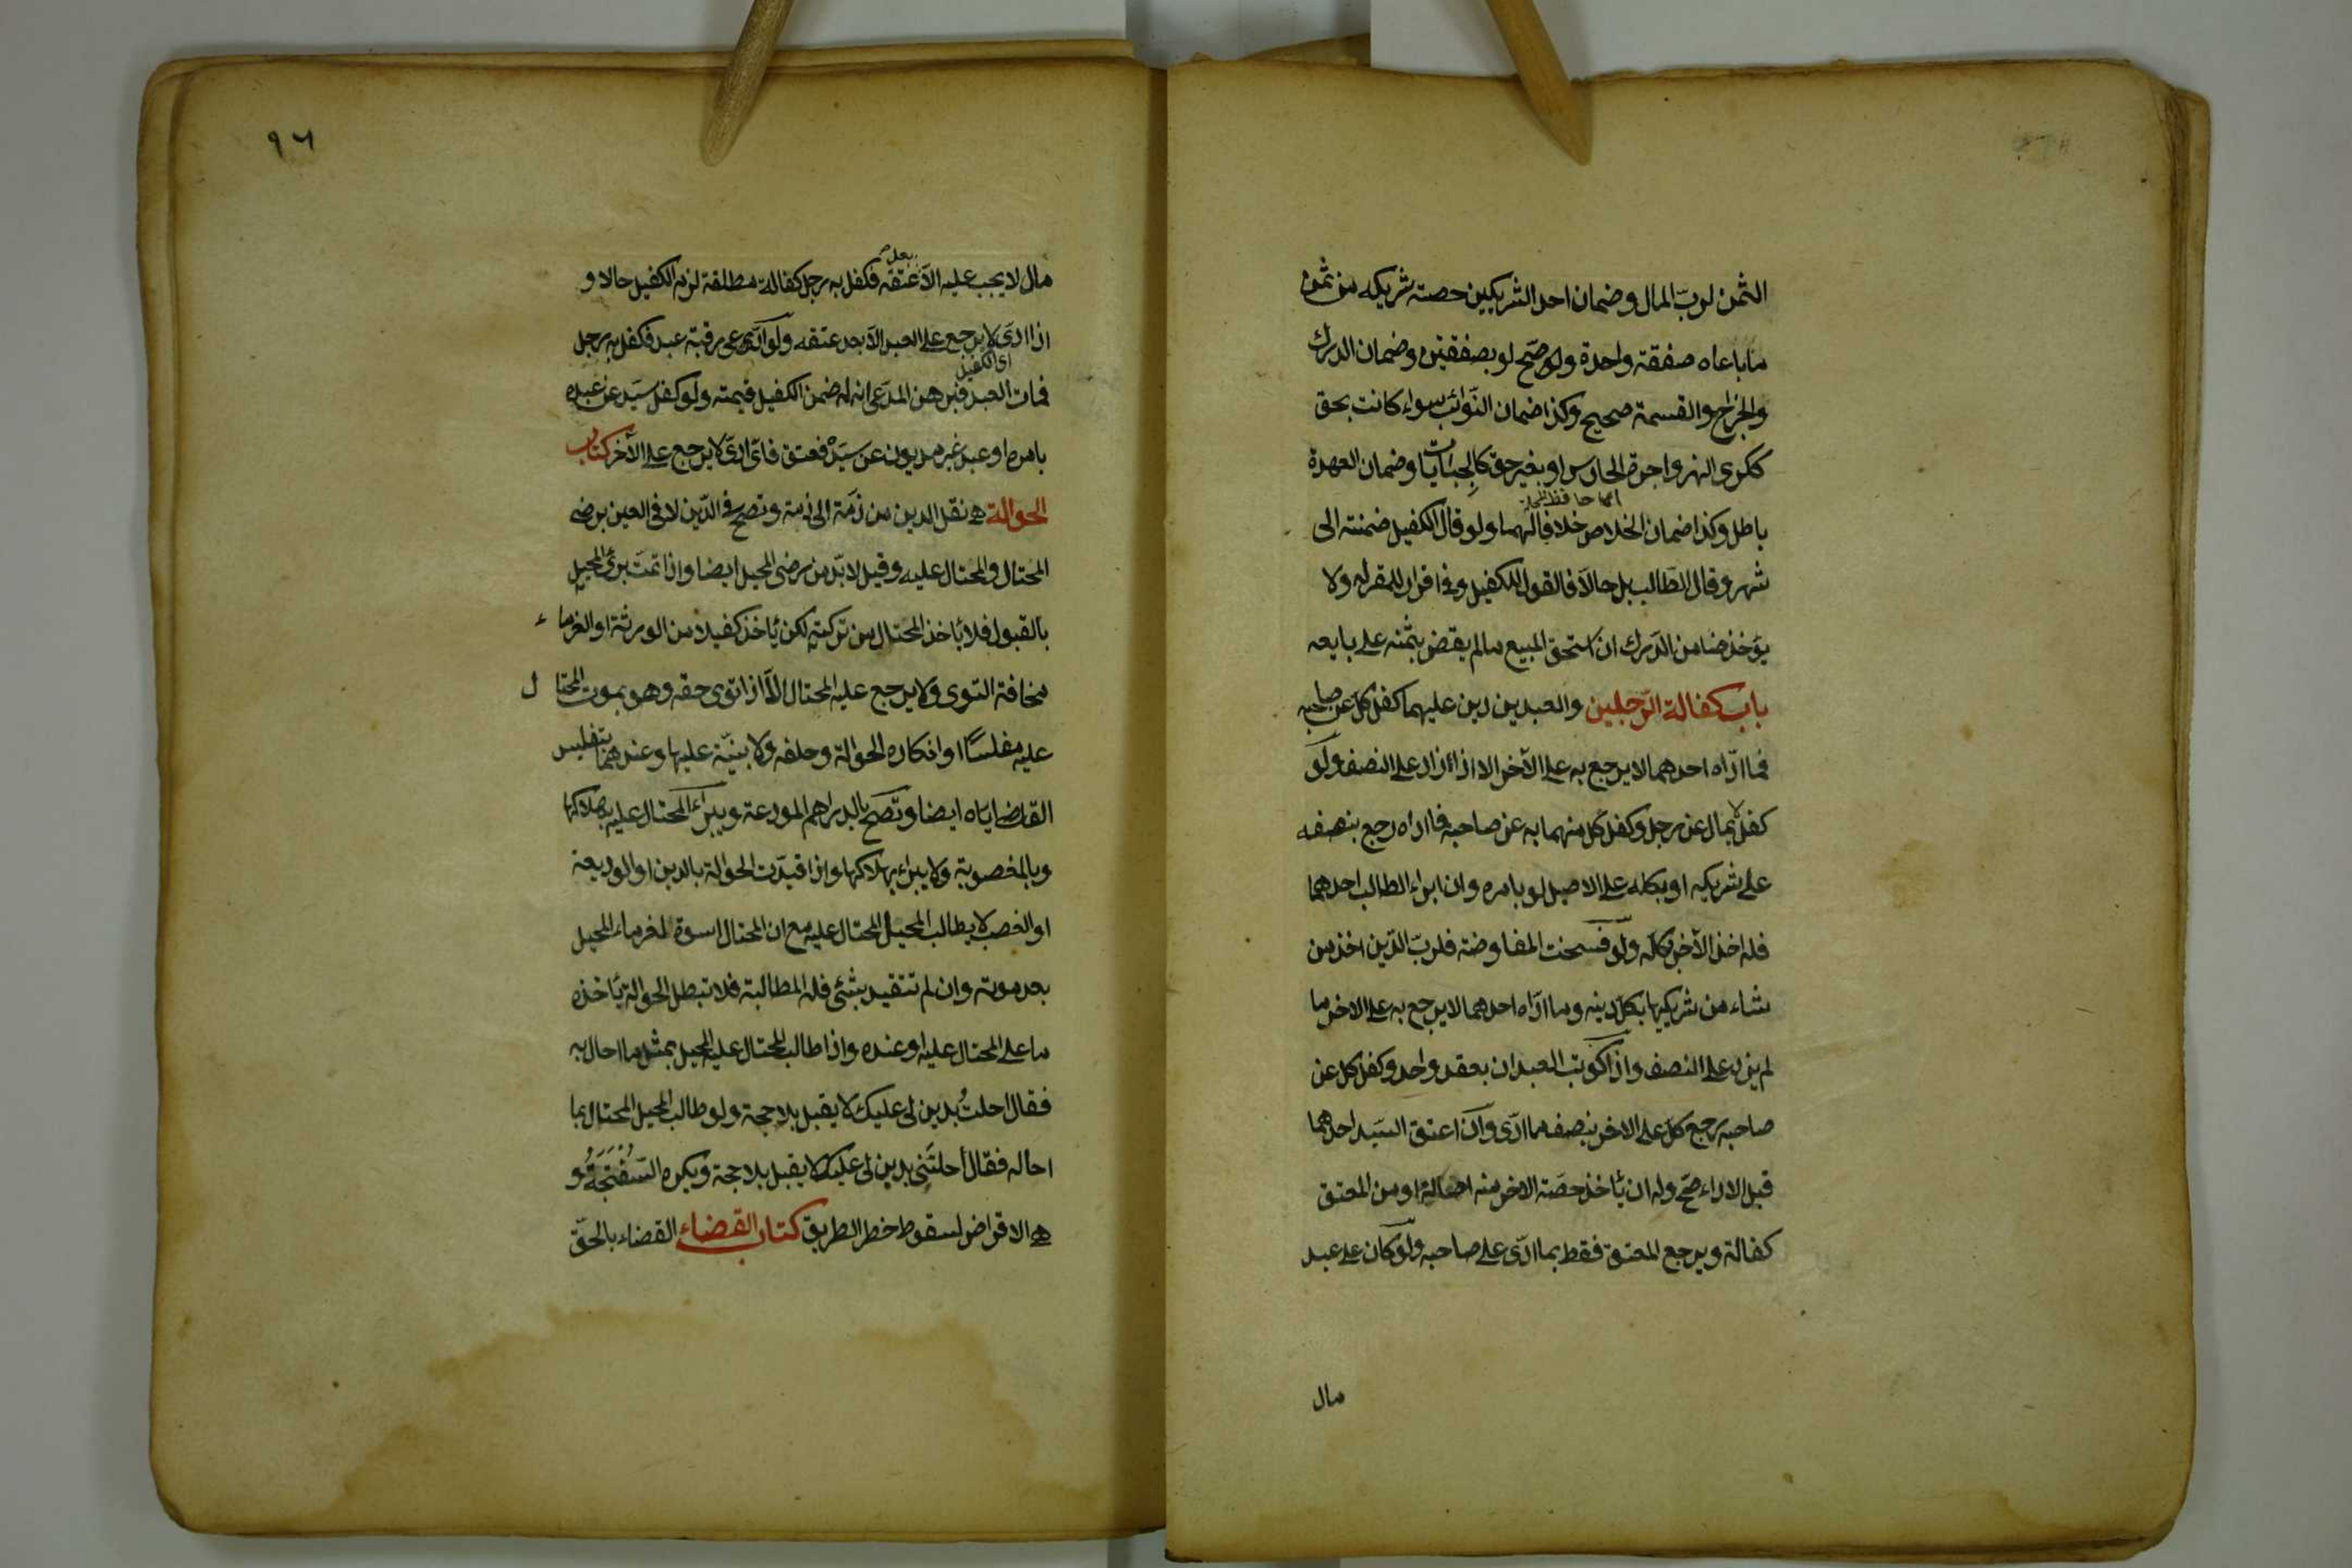 الثمن لربّ المال وضمان احد الشريكين حصته شريكه من ثمن
ما باعاه صفقة واحدة ولو صحّ لو بصفقتين وضمان الدرك
والخراج والقسمة صحيح وكذا ضمان النّوائب سواء كانت بحق
ككرى النهر واجرة الحارس او بغير حق كالجبايات وضمان العهدة
باطل وكذا ضمان الخلاص خلافا لهما ولو قال الكفيل ضمنته الى
شهر وقال الطّالب بل حالاّ فالقول للكفيل وفى اقرار للمقر له ولا
يؤخذ ضامن الدّرك ان استحق المبيع ما لم يقض بثمنه على بايعه
باب كفالة الرّجلين والعبدين دين عليهما كفل كل عن صاحبه
فما ادّاه احدهما لا يرجع به على الآخر الا اذا زاد على النصف ولو
كفلا بمال عن رجل وكفل كل منهما به عن صاحبه فما اداه رجع بنصفه
على شريكه او بكله على الاصيل لو بامره وان ابراء الطالب احدهما
فله اخذ الآخر بكلّه ولو فسخت المفاوضة فلربّ الدّين اخذ من
شاء من شريكيها بكلّ دينه وما ادّاه احدهما لا يرجع به على الاخر ما
لم يزد على النصف واذا كوتب العبدان بعقد واحد وكفل كل عن
صاحبه رجع كلّ على الاخر بنصف ما ادّى وان اعتق السّيد احدهما
قبل الاداء صحّ وله ان يأخذ حصّة الاخر منه اصالة او من المعتق
كفالة ويرجع المعتق فقط بما ادّى على صاحبه ولو كان على عبد
مال
٩٦
مال لا يجب عليه الاّ بعد عتقه فكفل به رجل كفالة مطلقة لزم الكفيل حالا و
اذا ادّى لا يرجع على العبد الاّ بعد عتقه ولو ادّعى رقبة عبد فكفل به رجل
اى الكفيل
فمات العبد فبرهن المدّعى انه له ضمن الكفيل قيمته ولو كفل سيّد عن عبده
بامره او عبد غير مديون عن سيّده فعتق فاىّ ادّى لا يرجع على الآخر كتاب
الحوالة هى نقل الدين من ذمّة الى ذمة وتصح فى الدّين لا فى العين برضى
المحتال والمحتال عليه وقيل لا بدّ من رضى المحيل ايضا واذا تمّت برئ المحيل
بالقبول فلا يأخذ المحتال من تركته لكن يأخذ كفيلا من الورثة او الغرماء
مخافة التوى ولا يرجع عليه المحتال الاّ اذا توى حقه وهو بموت المحتال
عليه مفلسًا او انكاره الحوالة وحلفه ولا بيّنة عليها وعندهما بتفليس
القاضى اياه ايضا وتصح بالدراهم المودعة ويبراء المحتال عليه بهلاكها
وبالمغصوبة ولا يبراء بهلاكها واذا قيدّت الحوالة بالدين او الوديعة
او الغصب لا يطالب المحيل المحتال عليه مع ان المحتال اسوة لغرماء المحيل
بعد موته وان لم تتقيد بشئ فله المطالبة فلا تبطل الحوالة يأخذه
ما على المحتال عليه او عنده واذا طالب المحتال عليه المحيل بمثل ما احال به
فقال احلتُ بدين لى عليك لا يقبل بلا حجة ولو طالب المحيل المحتال بما
احاله فقال أحلتَنى بدين لى عليك لا يقبل بلا حجة ويكره السّفتَجَةُ و
هى الاقراض لسقوط خطر الطريق كتاب القضاء القضاء بالحقّ